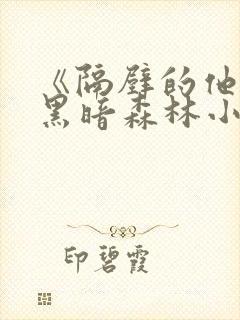 《隔壁的他
黑暗森林小
印碧霞